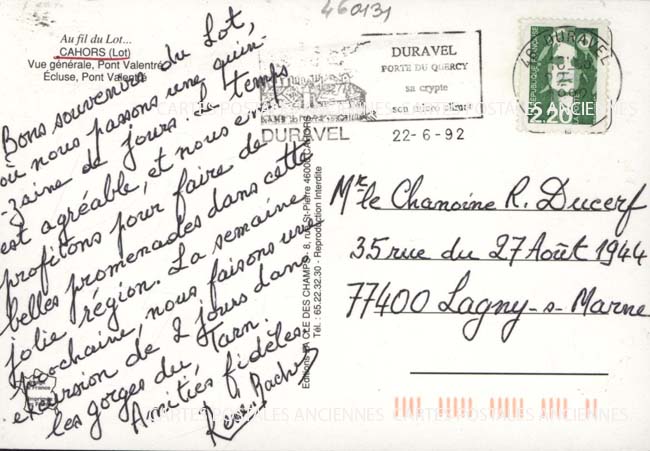 460131
Au fil du Lot...
CAHORS (Lot)
Vue générale, Pont Valentré
Écluse, Pont Valentré
Bons souvenirs du Lot,
où nous passons une quin-
-zaine de jours. Le temps
est agréable, et nous en
profitons pour faire de
belles promenades dans cette
jolie région. La semaine
prochaine, nous faisons une
excursion de 2 jours dans
les gorges du Tarn.
Amitiés fidèles.
Editions LA CLEE DES CHAMPS - 8, rue St-Pierre 46000 CAHORS
Tél. : 65.22.32.30 - Reproduction Interdite
DURAVEL
PORTE DU QUERCY
sa crypte
son micro climat
DURAVEL
22-6-92
46 DURAVEL
REPUBLIQUE FRANÇAISE
2,20
Mr le Chanoine R. Ducerf
35 rue du 27 Août 1944
77400 Lagny-s-Marne
CARTES POSTALES ANCIENNES
CARTES POSTALES ANCIENNES